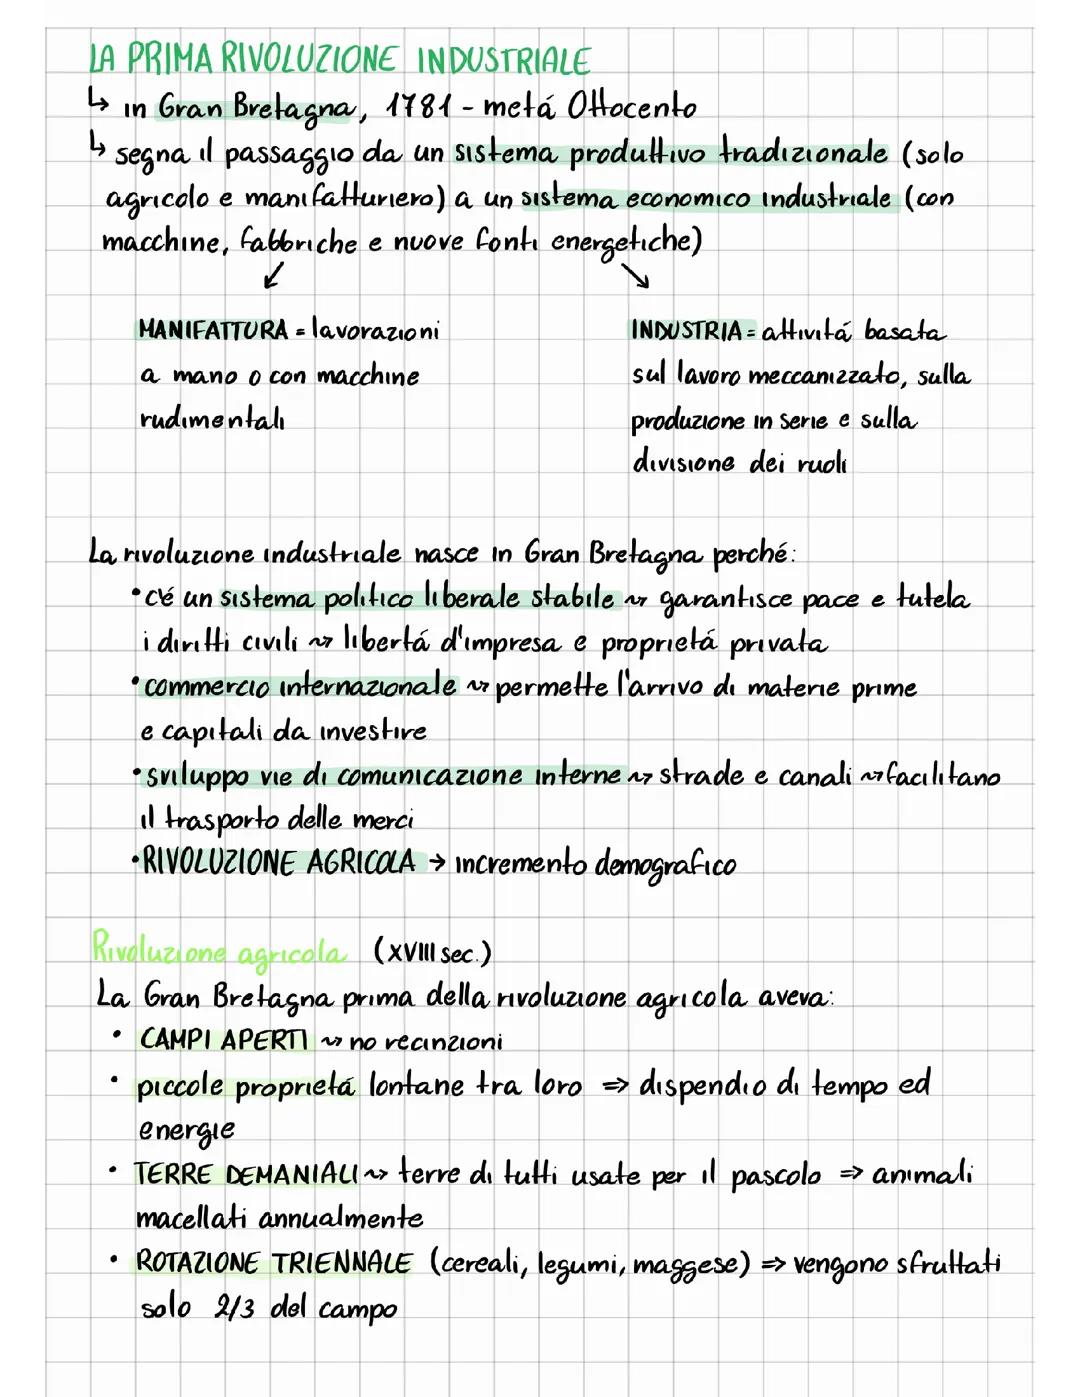 LA PRIMA RIVOLUZIONE INDUSTRIALE
↳ in Gran Bretagna, 1781 - metá Ottocento
↳ segna il passaggio da un sistema produttivo tradizionale (solo
agricolo e manifatturiero) a un sistema economico industriale (con
macchine, fabbriche e nuove fonti energetiche)
↙ ↘
MANIFATTURA = lavorazioni
a mano o con macchine
rudimentali
INDUSTRIA = attivitá basata
sul lavoro meccanizzato, sulla
produzione in serie e sulla
divisione dei ruoli
La rivoluzione industriale nasce in Gran Bretagna perché:
• c'é un sistema politico liberale stabile ⤳ garantisce pace e tutela
i diritti civili ⤳ libertá d'impresa e proprietá privata
• commercio internazionale ⤳ permette l'arrivo di materie prime
e capitali da investire
• sviluppo vie di comunicazione interne ⤳ strade e canali ⤳ facilitano
il trasporto delle merci
• RIVOLUZIONE AGRICOLA → incremento demografico
Rivoluzione agricola (XVIII sec.)
La Gran Bretagna prima della rivoluzione agricola aveva:
• CAMPI APERTI ⤳ no recinzioni
• piccole proprietá lontane tra loro ⇒ dispendio di tempo ed
energie
• TERRE DEMANIALI ⤳ terre di tutti usate per il pascolo ⇒ animali
macellati annualmente
• ROTAZIONE TRIENNALE (cereali, legumi, maggese) ⇒ vengono sfruttati
solo 2/3 del campo